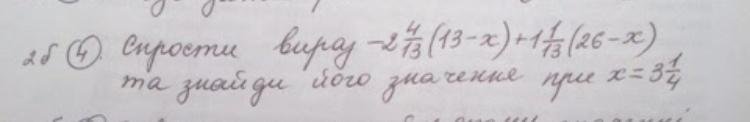 2б ④. Спрости вираз -2 4/13 (13-x)+1 1/13 (26-x)
та знайди його значення при x=3 1/4